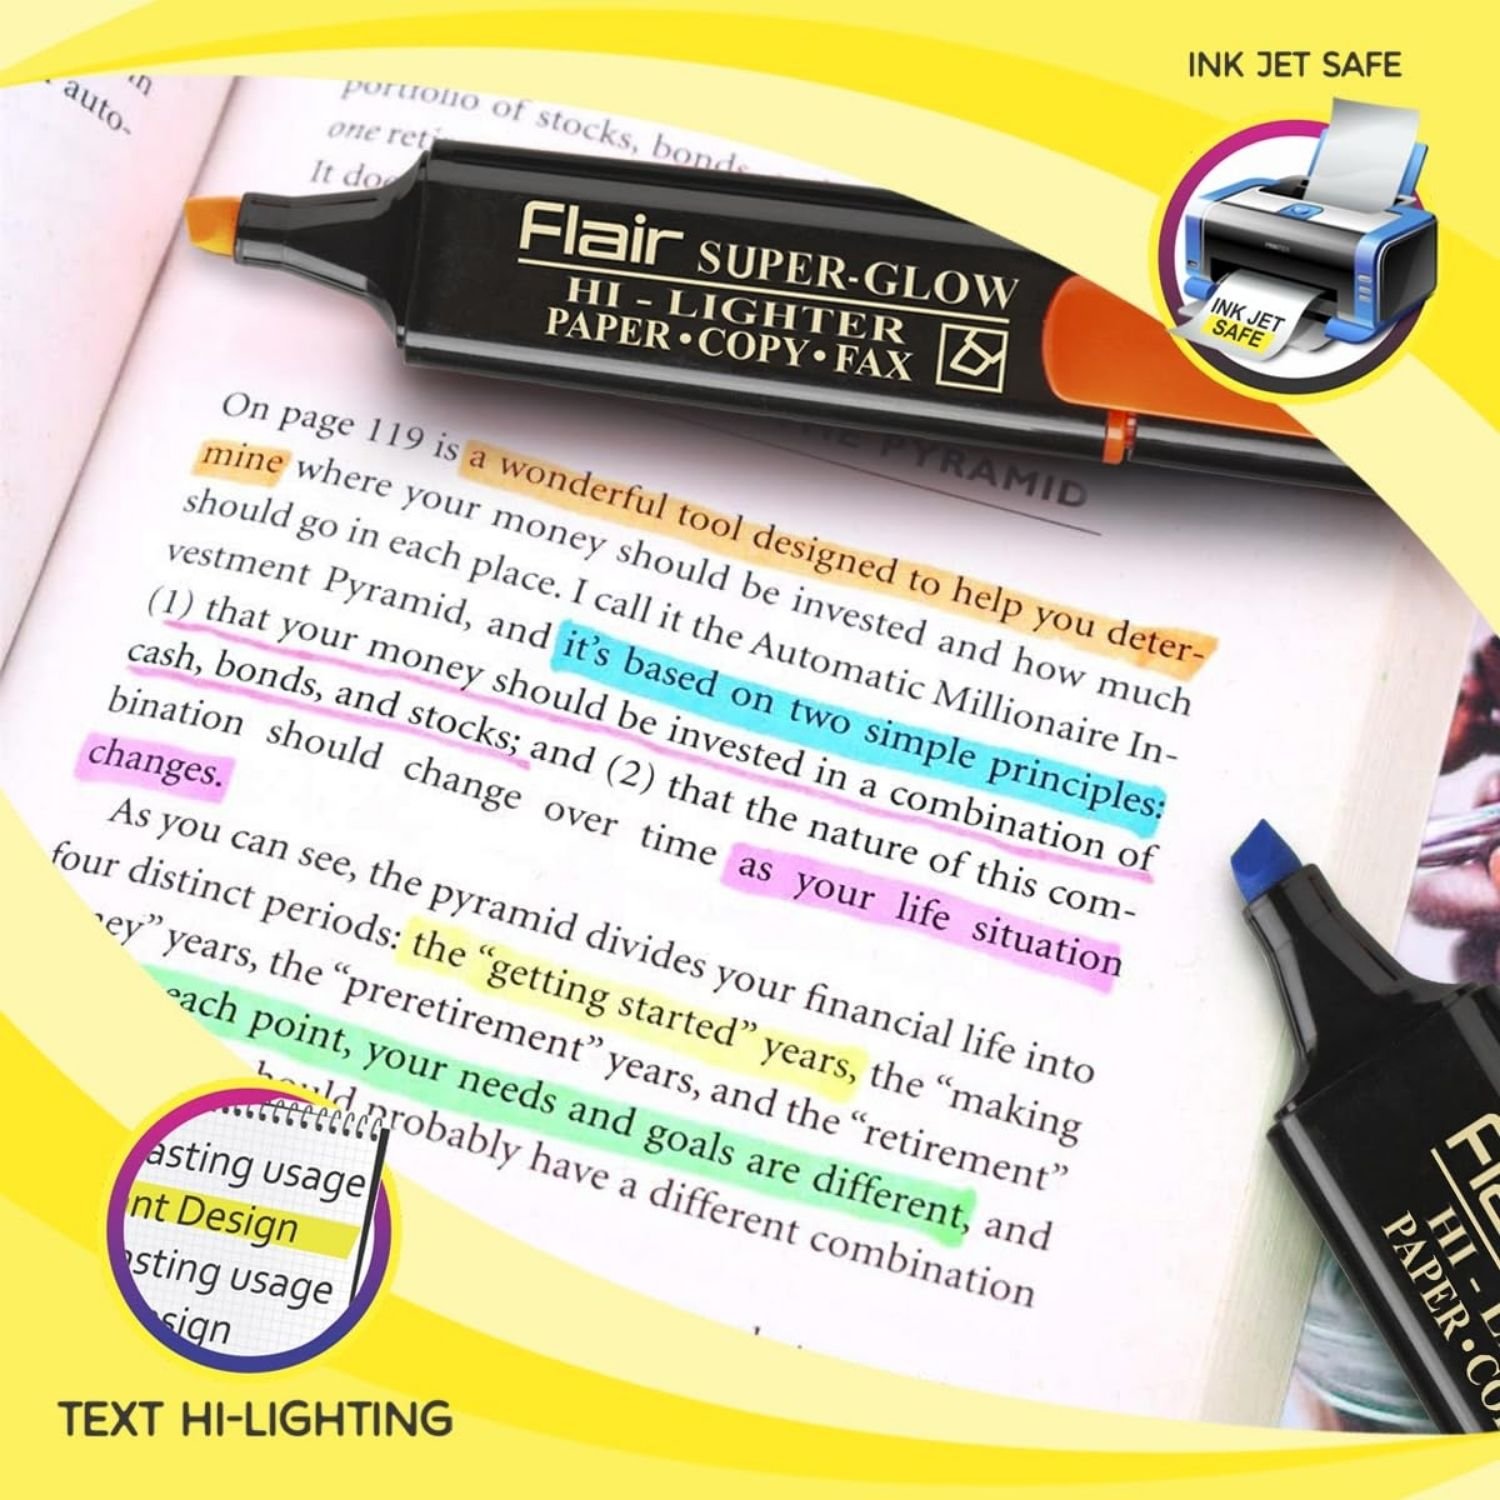 INK JET SAFE
in
auto-
portfolio of stocks, bonds,
one
It
Flair SUPER-GLOW
HI - LIGHTER
PAPER • COPY • FAX
INK JET
SAFE
PYRAMID
On page 119 is a wonderful tool designed to help you deter-
mine where your money should be invested and how much
should go in each place. I call it the Automatic Millionaire In-
vestment Pyramid, and it's based on two simple principles:
(1) that your money should be invested in a combination of
cash, bonds, and stocks; and (2) that the nature of this com-
bination should change over time as your life situation
changes.
As you can see, the pyramid divides your financial life into
four distinct periods: the “getting started” years, the “making
ney” years, the “preretirement” years, and the “retirement”
each point, your needs and goals are different, and
hould probably have a different combination
HI -
PAPER • CO
asting usage
nt Design
sting usage
sign
TEXT HI-LIGHTING